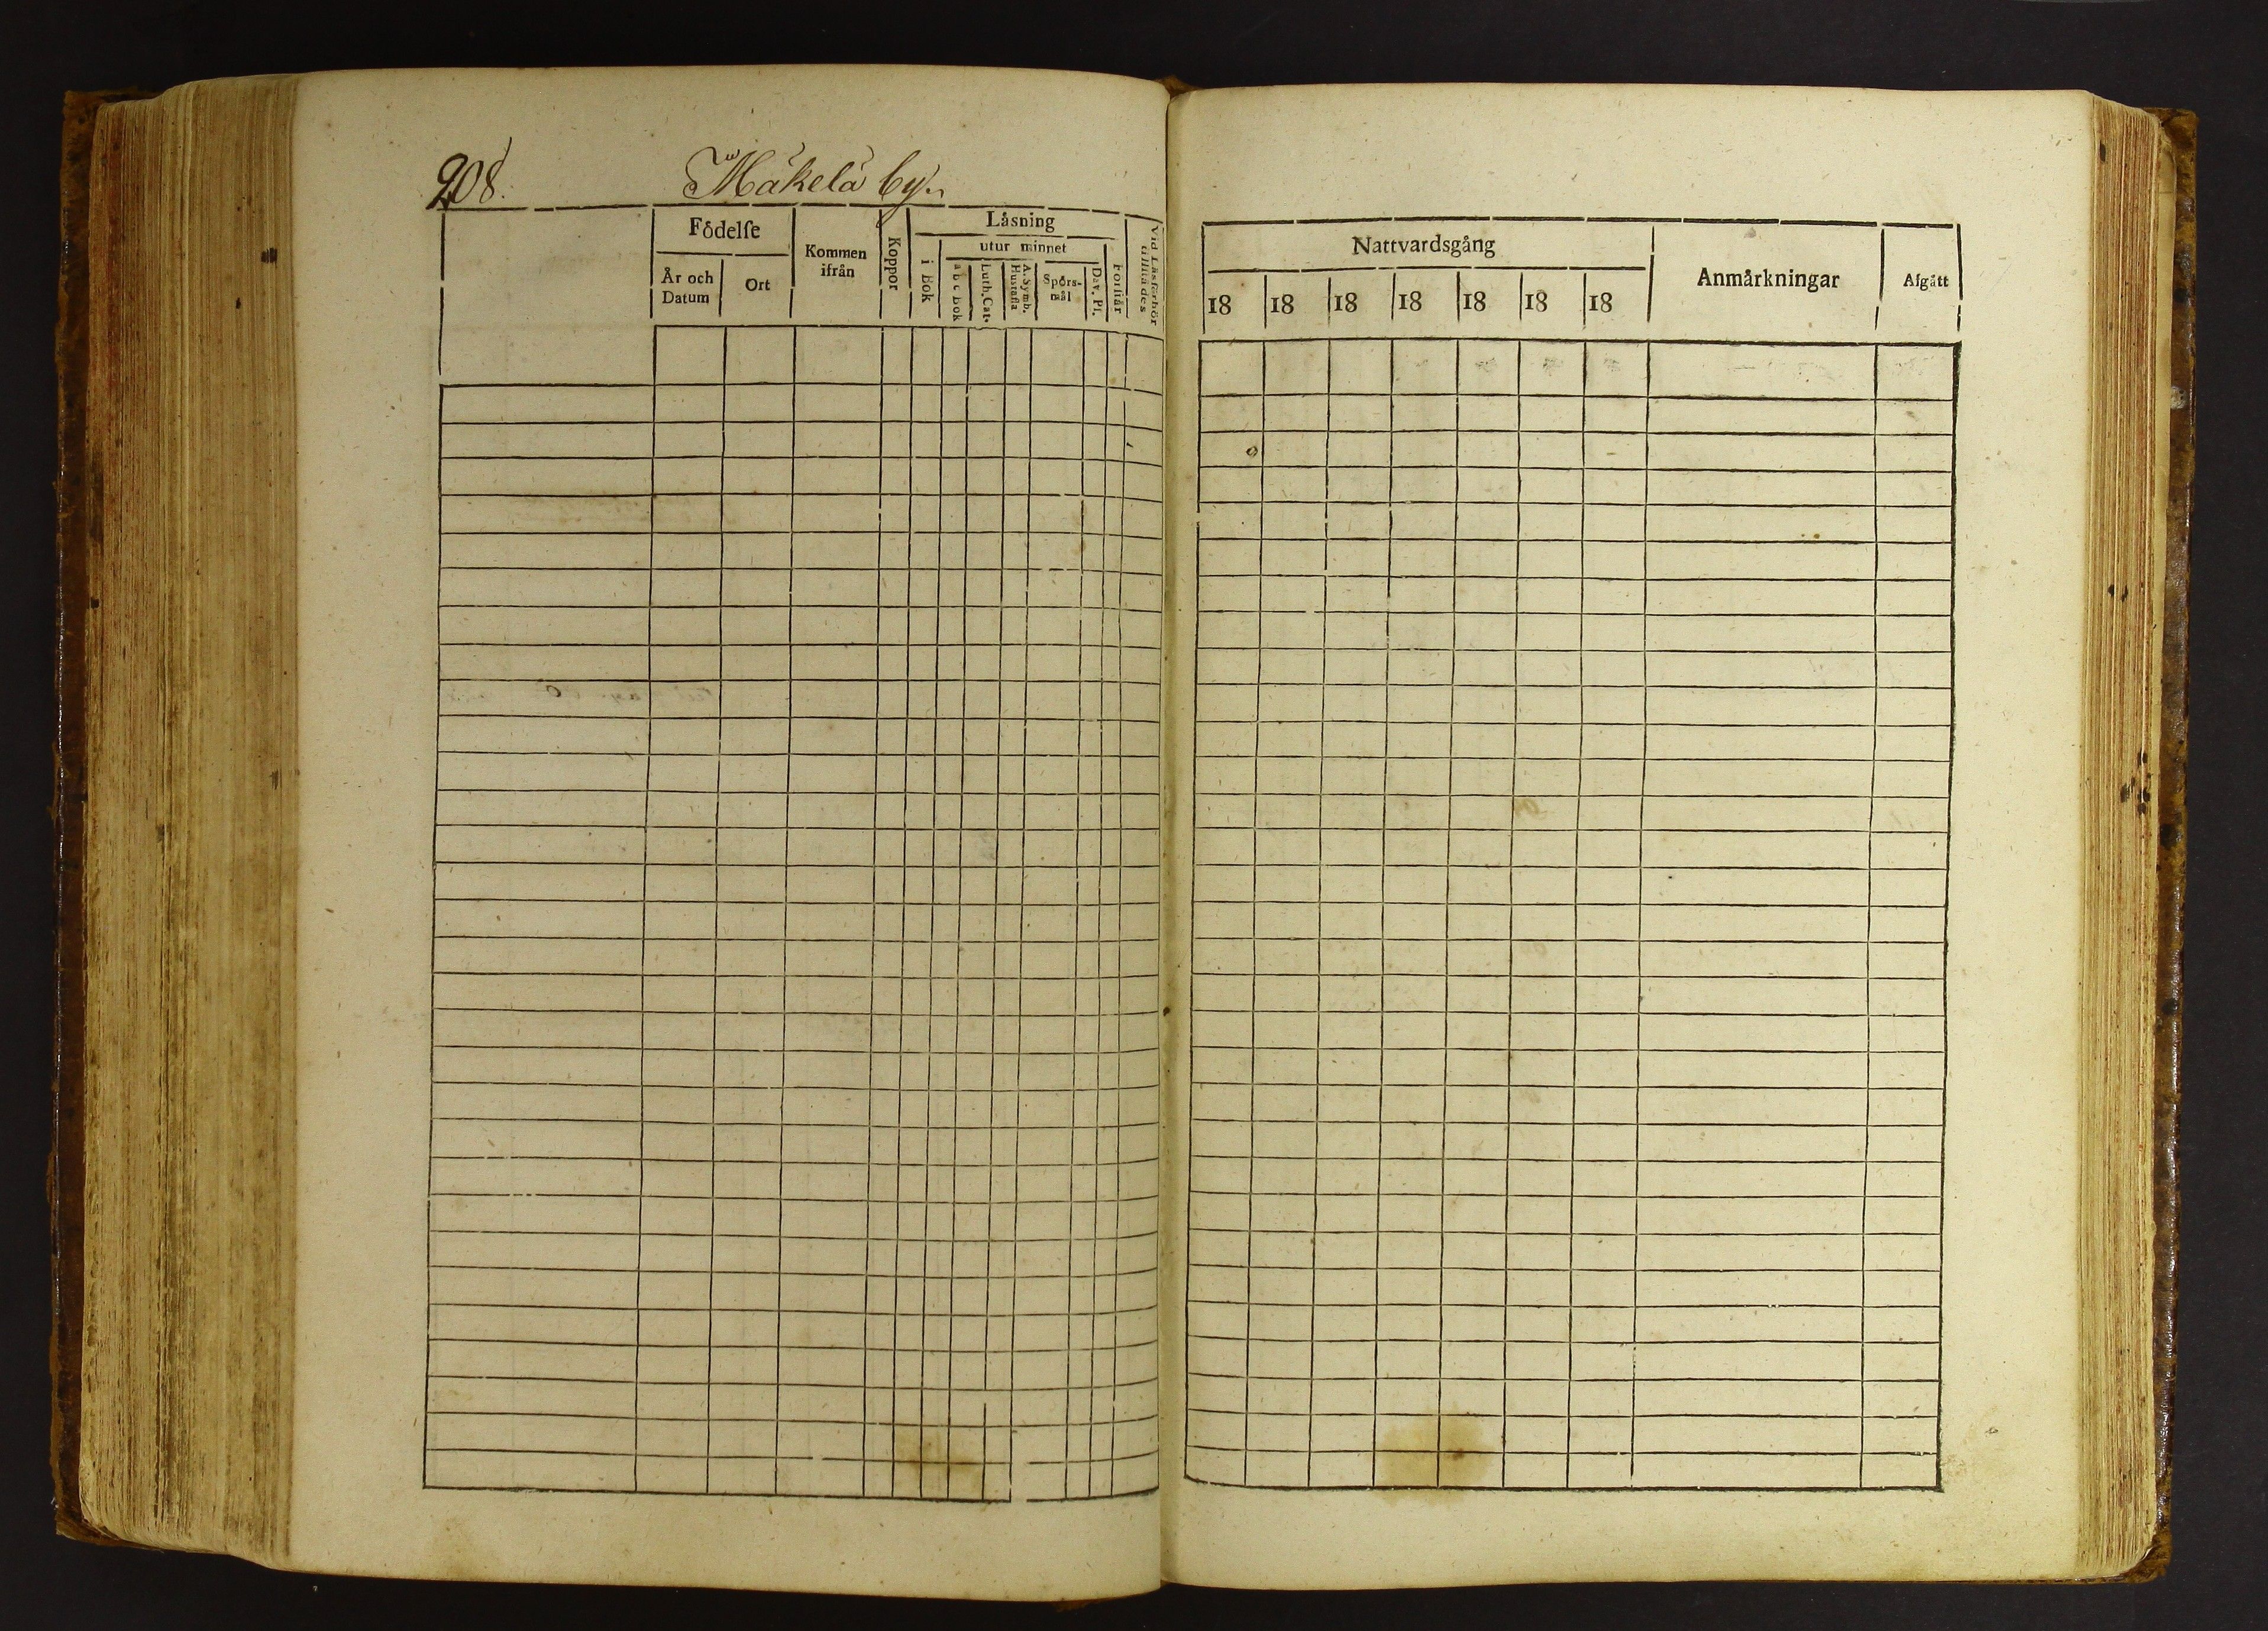 208.
Mäkelä by.
Födelse
År och Datum
Ort
Kommen ifrån
Koppor
Läsning
i Bok
utur minnet
a b c Bok
Luth. Cat.
A. Symb. Hustafla
Spörs-mål
Dav. Ps.
Förstår
Vid Läsförhör tillstädes
Nattvardsgång
18 18 18 18 18 18 18
Anmärkningar
Afgått